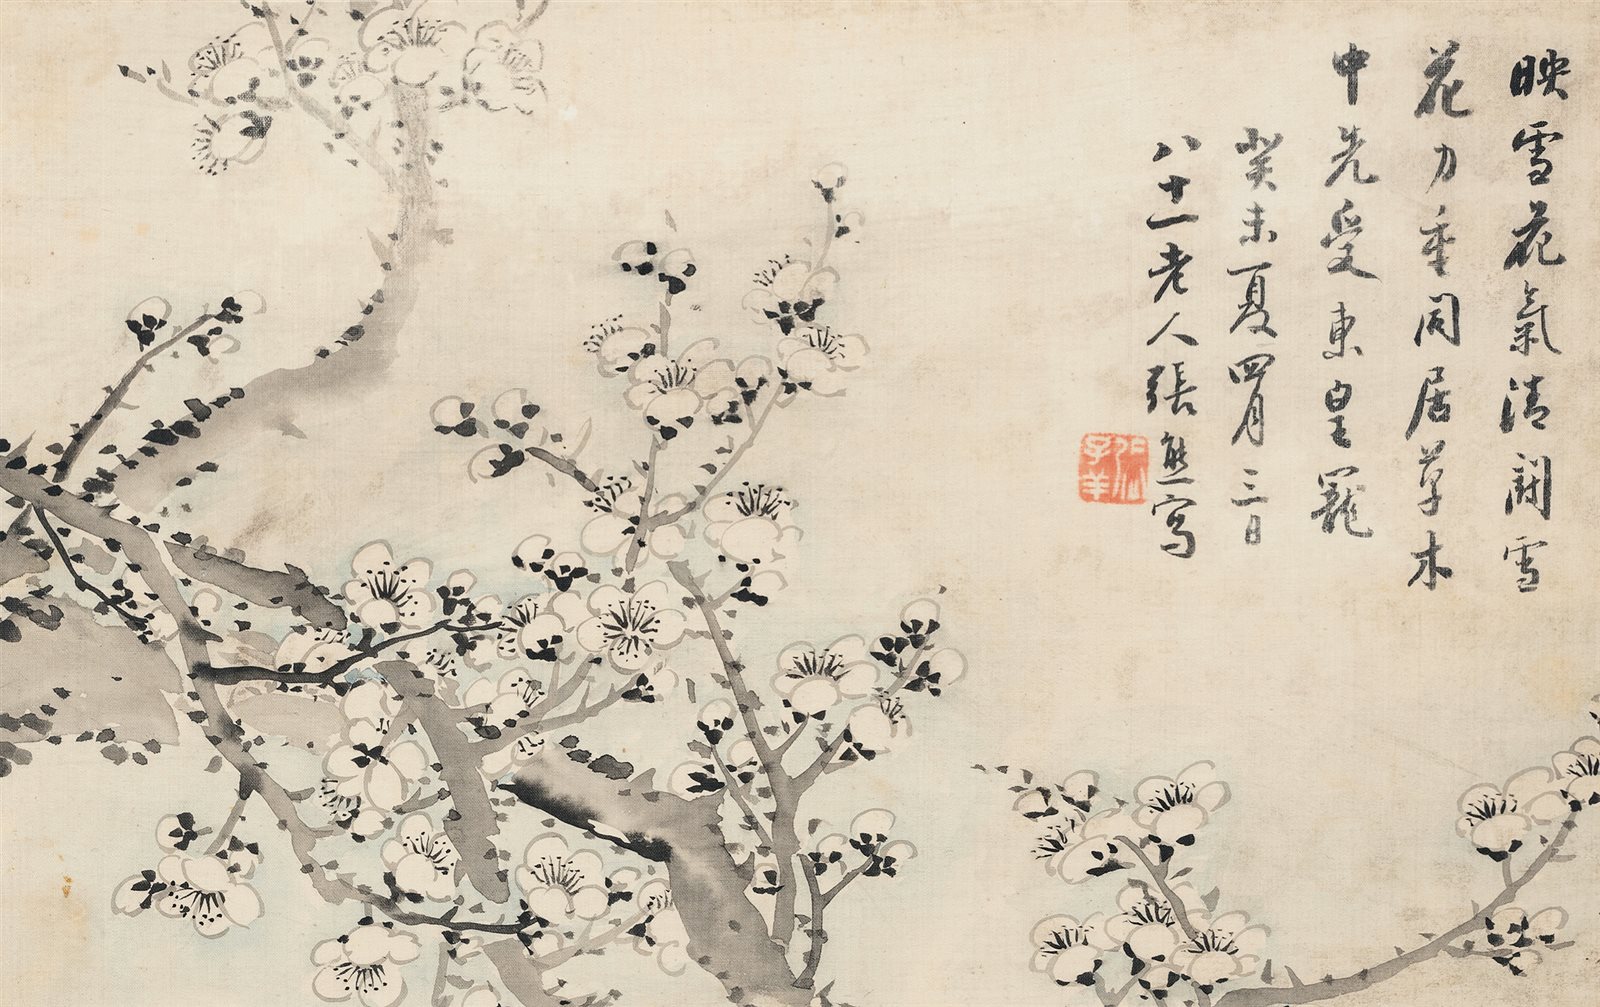 映雪花氣清鬭雪
花力重同居草木
中先受東皇寵
癸未夏四月三日
八十一老人張熊寫
張子羊